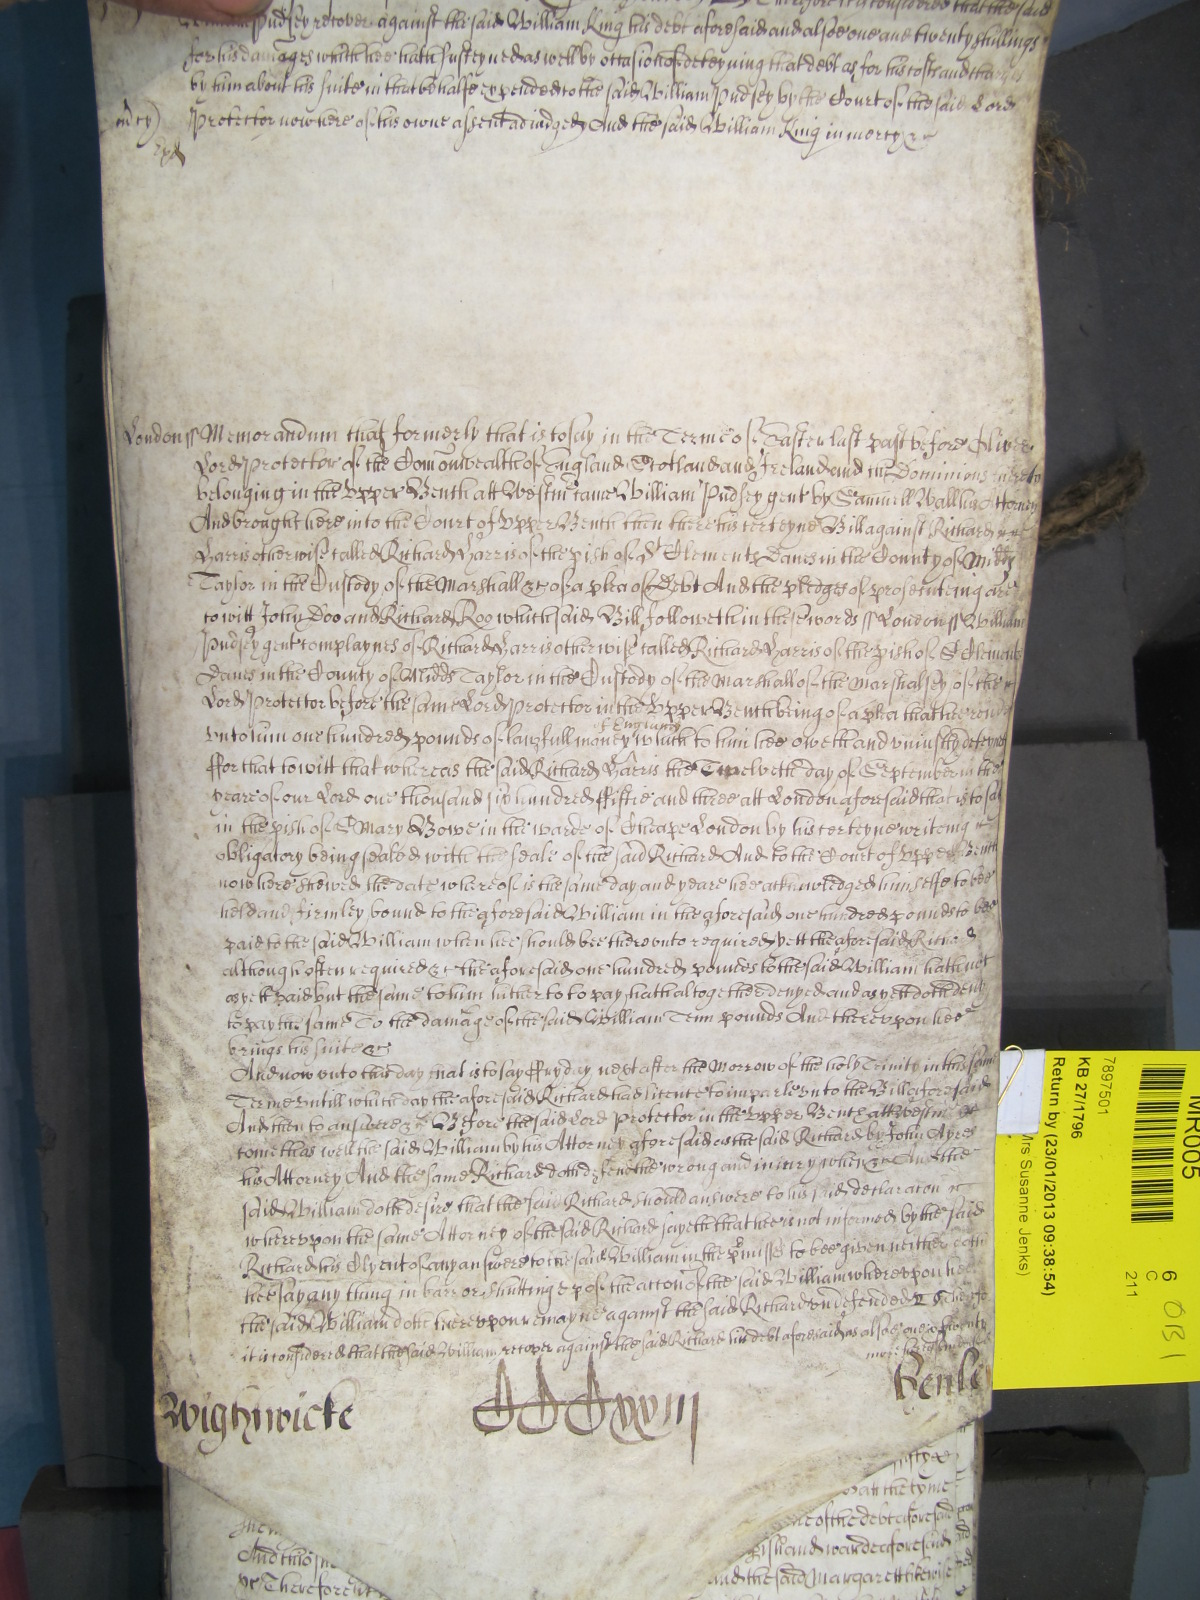 William Pudsey recover against the said William King his debt aforesaid and alsoe one and twenty shillings
for his damages which hee hath susteyned as well by occasion of deteyning that debt as for his costs and charges
by him about his suite in that behalfe expended to the said William Pudsey by the Court of the said Lord
Protector now here of his owne assent adiudged And the said William King in mercy &c
Mercy
London ss Memorandum that formerly that is to say in the Terme of Easter last past before Oliver
Lord Protector of the Comonwealth of England Scotland and Ireland and the Dominions thereto
belonging in the Upper Bench att Westm came William Pudsey gent by Samuell Wallis his Attorney
And brought here into the Court of Upper Bench then there his certeyne Bill against Richard
Harris otherwise called Richard Harris of the pish of St Clements Danes in the County of Midd
Taylor in the Custody of the Marshall &c of a plea of Debt And the pledges of prosecuteing are
to witt John Doo and Richard Roo which said Bill followeth in these words ss London ss William
Pudsey gent complaynes of Richard Harris otherwise called Richard Harris of the pish of St Clements
Danes in the County of Midds Taylor in the Custody of the Marshall of the Marshalsey of the
Lord Protector before the same Lord Protector in the Upper Bench being of a plea that hee render
of England
unto him one hundred pounds of lawfull money which to him hee oweth and uniustly deteynes
ffor that to witt that whereas the said Richard Harris the Twelveth day of September in the
yeare of our Lord one thousand six hundred ffiftie and three att London aforesaid that is to say
in the pish of St Mary Bowe in the warde of Cheape London by his certeyne writeing
obligatory being sealed with the seale of the said Richard And to the Court of Upper Bench
now here shewed the date whereof is the same day and yeare hee acknowledged himselfe to bee
held and firmley bound to the aforesaid William in the aforesaid one hundred pounds to bee
paid to the said William when hee should bee thereunto required yett the aforesaid Richard
although often required &c the aforesaid one hundred poundes to the said William hath not
as yett paid but the same to him hitherto to pay hath altogether denyed and as yett doth deny
to pay the same To the damage of the said William Tenn pounds And thereupon hee
brings his suite &c
And now unto this day that is to say ffryday next after the Morrow of the holy Trinity in this same
Terme untill which day the aforesaid Richard had licence to imparle unto the Bill aforesaid
And then to answere &c Before the said Lord Protector in the Upper Bench att Westm
come the as well the said William by his Attorney aforesaid as the said Richard by John Ayres
his Attorney And the same Richard doth defend the wrong and iniury when &c And the
said William doth desire that the said Richard should answere to his said declaracon
whereupon the same Attorney of the said Richard sayeth that hee is not informed by the said
Richard his Clyent of any answere to the said William in the pmisses to bee given neither doth
hee say any thing in barr or shutting e p of the accon of the said William whereupon hee
the said William doth thereupon remayne against the said Richard undefended &c Therefore
it is considered that the said William recover against the said Richard his debt aforesaid as alsoe one & twenty
Wightwicke
DDDxxiii
Henle
And this
Therefore
have the tyme
of the debt aforesaid
pish and warde aforesaid
and the said Margarett likewise
MR005
6
C
211
OB 1
7897501
KB 27/1796
Return by (23/01/2013 09:38:54)
Mrs Susanne Jenks)